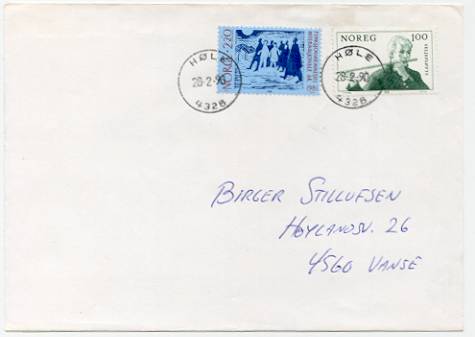 HØLE
28-2-90
4328
NORGE 2.20
HØLE
28-2-90
4328
NOREG 1.00
BIRGER STILLUFSEN
HØYLANDSV. 26
4560 VANSE